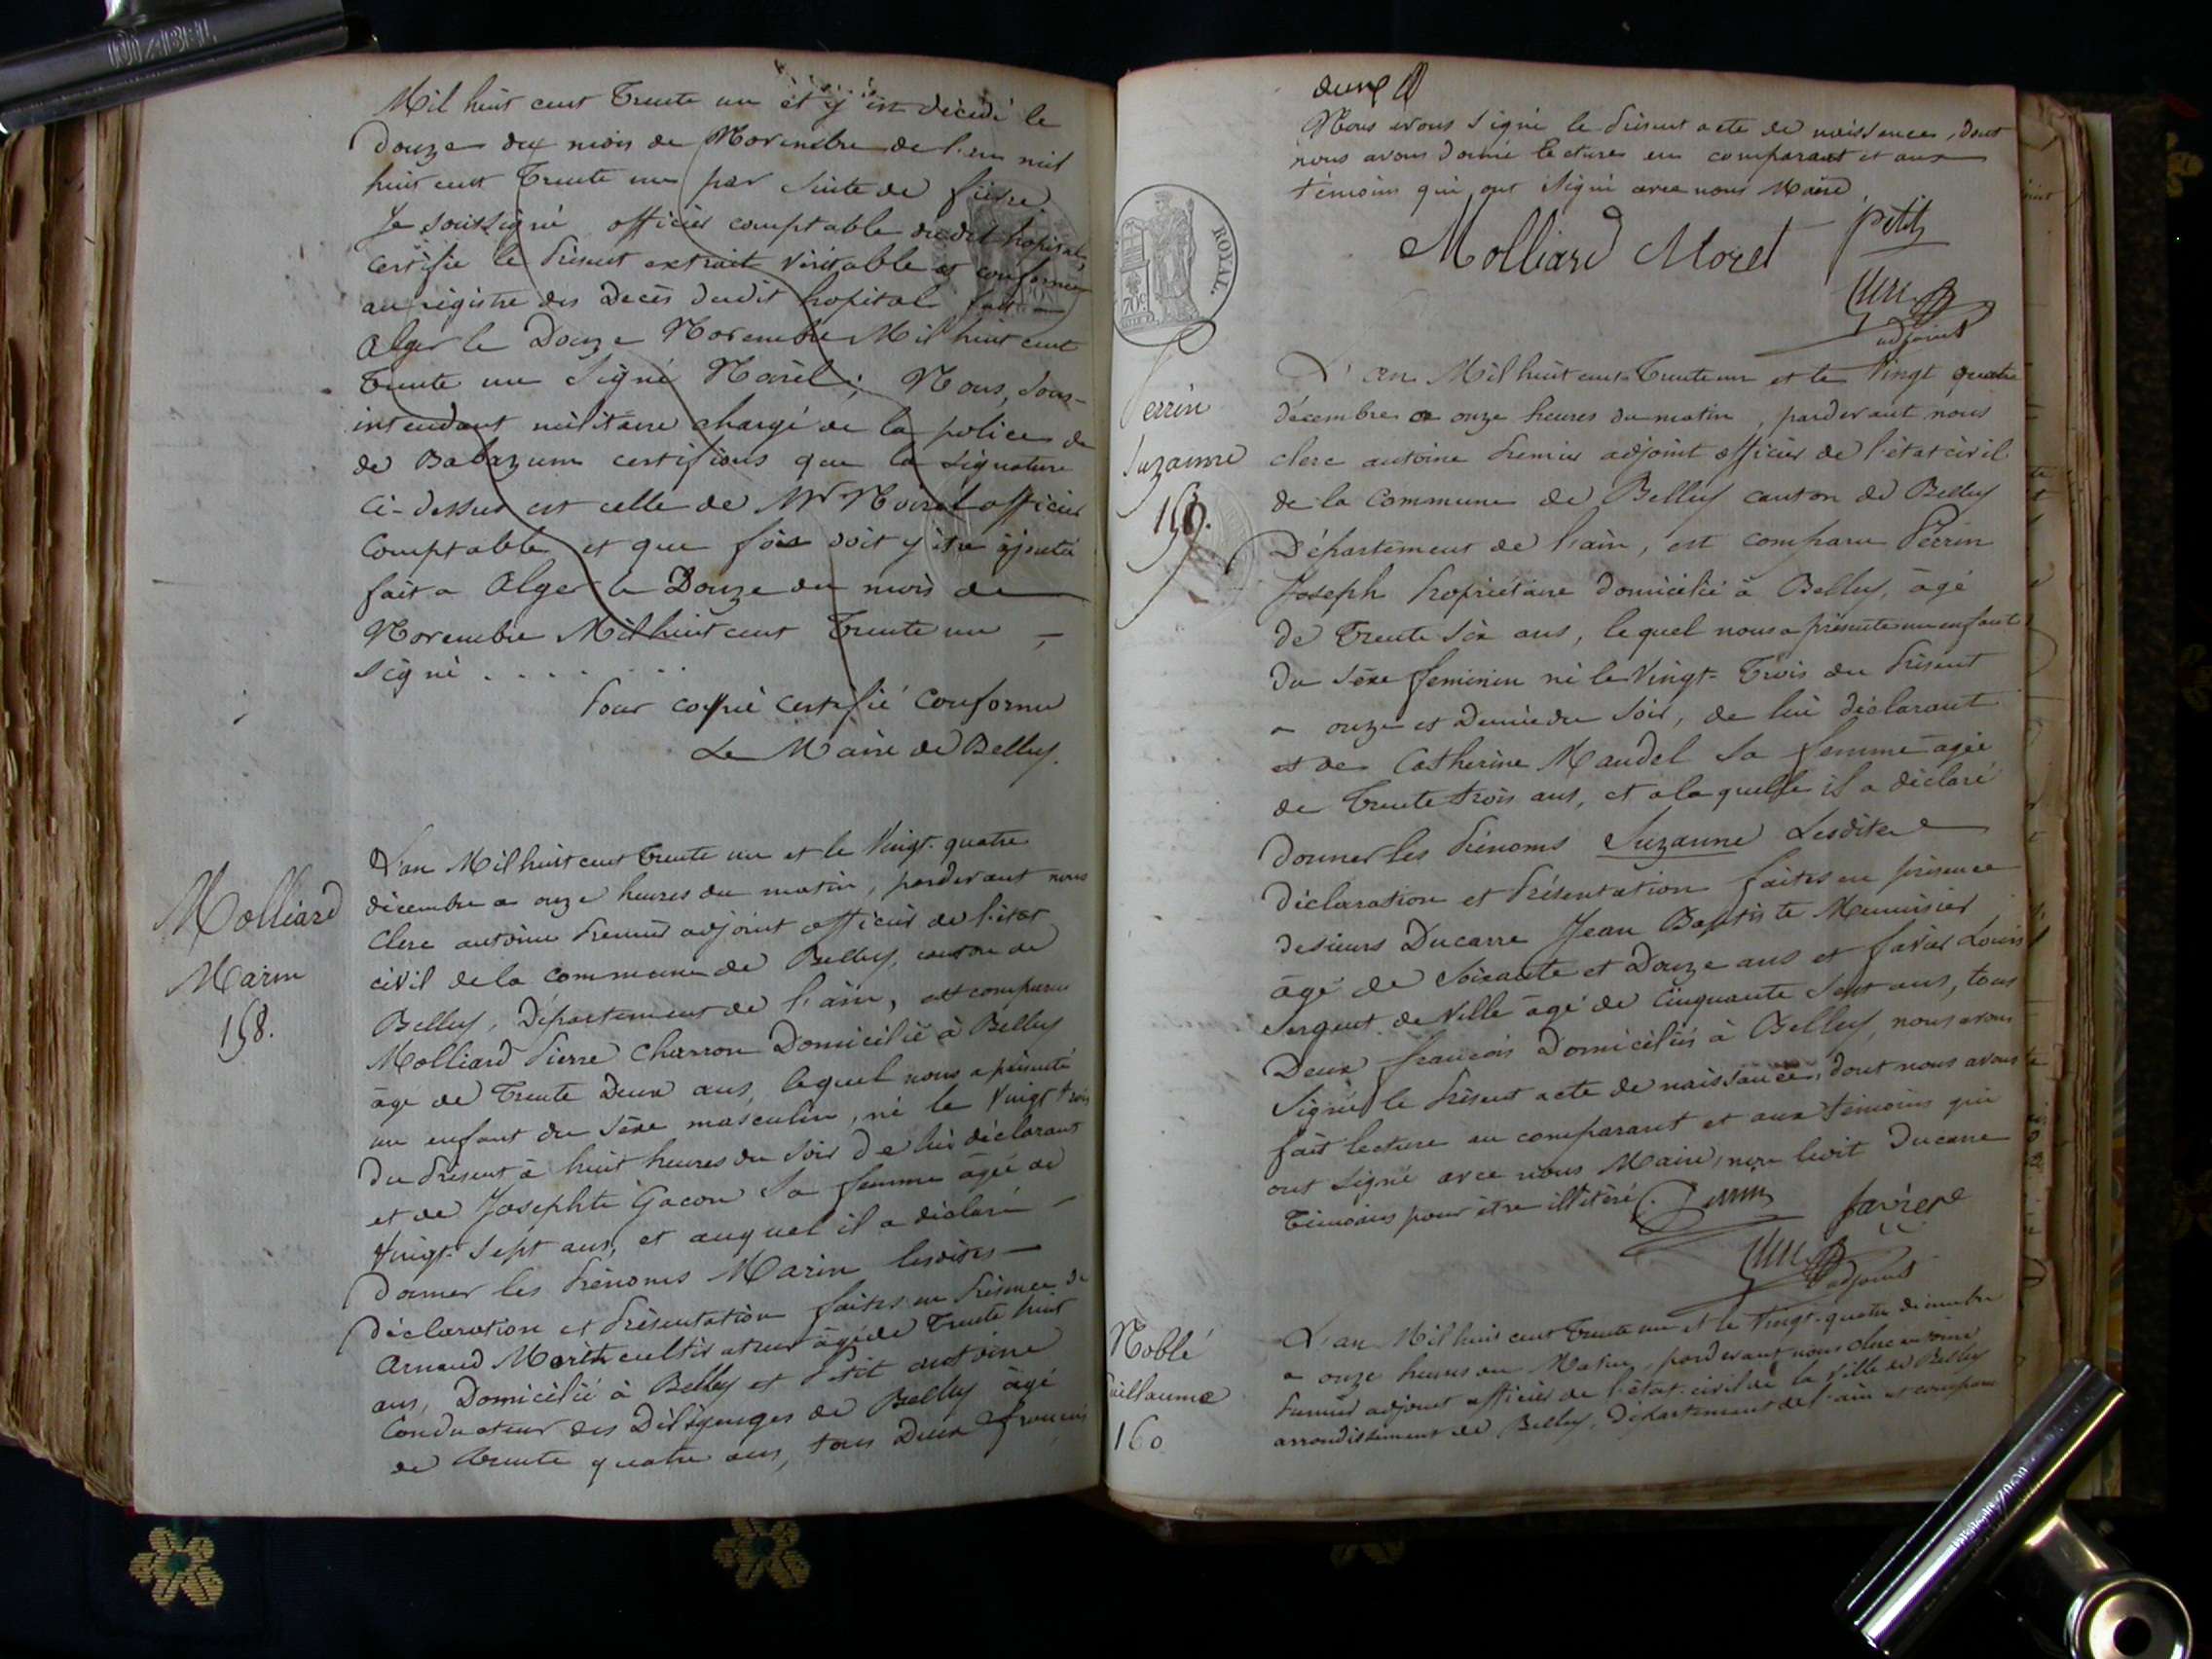 Mil huit cent Trente un et y est décédé le
Douze du mois de Novembre de l'an mil
huit cent Trente un par suite de fièvre
Je soussigné officier comptable dudit hopital,
certifie le présent extrait véritable et conforme
au régistre des Décès dudit hopital fait a
Alger le Douze Novembre Mil huit cent
Trente un Signé ; Nous, Sous-
intendant militaire chargé de la police de
de Babazum certifions que la signature
ci-dessus est celle de Mr officier
Comptable et que foi soit y être ajouté
fait a Alger le Douze du mois de
Novembre Mil huit cent Trente un
signé . . . . . .
Pour copie certifié conforme
Le Maire de Belley.
Molliard
Marin
158.
L'an Mil huit cent Trente un et le Vingt-quatre
décembre a onze heures du matin, pardevant nous
Clerc antoine premier adjoint officier de l'état
civil de la commune de Belley, canton de
Belley, Département de l'ain, est comparu
Molliard Pierre Charron Domicilié à Belley
âge de Trente Deux ans, lequel nous a présenté
un enfant du sexe masculin, né le Vingt trois
Du présent à huit heures du soir De lui déclarant
et de Josephte Gacon Sa femme âgée de
Vingt-Sept ans, et auquel il a déclaré
Donner les Prénoms Marin lesdites
Déclaration et Présentation faites en présence de
Arnaud cultivateur âgé de Trente huit
ans, Domicilié à Belley et Petit antoine
Conducteur des Diligences de Belley âgé
de Trente quatre ans, tous Deux françois
ROYAL.
70c
Nous avons signé le présent acte de naissance, dont
nous avons donné lecture au comparant et aux
témoins qui ont signé avec nous Maire
Molliard Moret petit
Clerc
adjoint
Perrin
Suzanne
159.
L'an Mil huit cent Trente un et le Vingt quatre
décembre a onze heures du matin, pardevant nous
clerc antoine Premier adjoint officier de l'état civil
de la Commune de Belley canton de Belley
Département de l'ain, est comparu Perrin
Joseph Propriétaire Domicilié à Belley, âgé
de Trente Six ans, lequel nous a présenté un enfant
Du sexe féminin né le Vingt-Trois du Présent
a onze et Demie du Soir, de lui déclarant
et de Catherine Maudel Sa femme agée
de Trente trois ans, et a laquelle il a déclaré
Donner les Prénoms Suzanne Lesdites
Déclaration et Présentation faites en présence
desieurs Ducarre Jean Baptiste Menuisier
âgé de Soixante et Douze ans et favier Louis
Sergent de Ville âgé de Cinquante Sept ans, tous
Deux françois Domiciliés à Belley, nous avons
Signé le Présent acte de naissance, dont nous avons
fait lecture au comparant et aux témoins qui
ont signé avec nous Maire, non ledit Ducarre
Témoins pour être illitéré. Perrin favier
Clerc
adjoint
Noblé
Guillaume
160
L'an Mil huit cent Trente un et le Vingt-quatre décembre
a onze heures du Matin, pardevant nous clerc antoine
Premier adjoint officier de l'état civil de la Ville de Belley
arrondissement de Belley, Département de l'ain est comparu